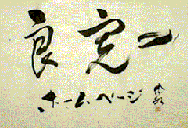 良寛一
ホームページ